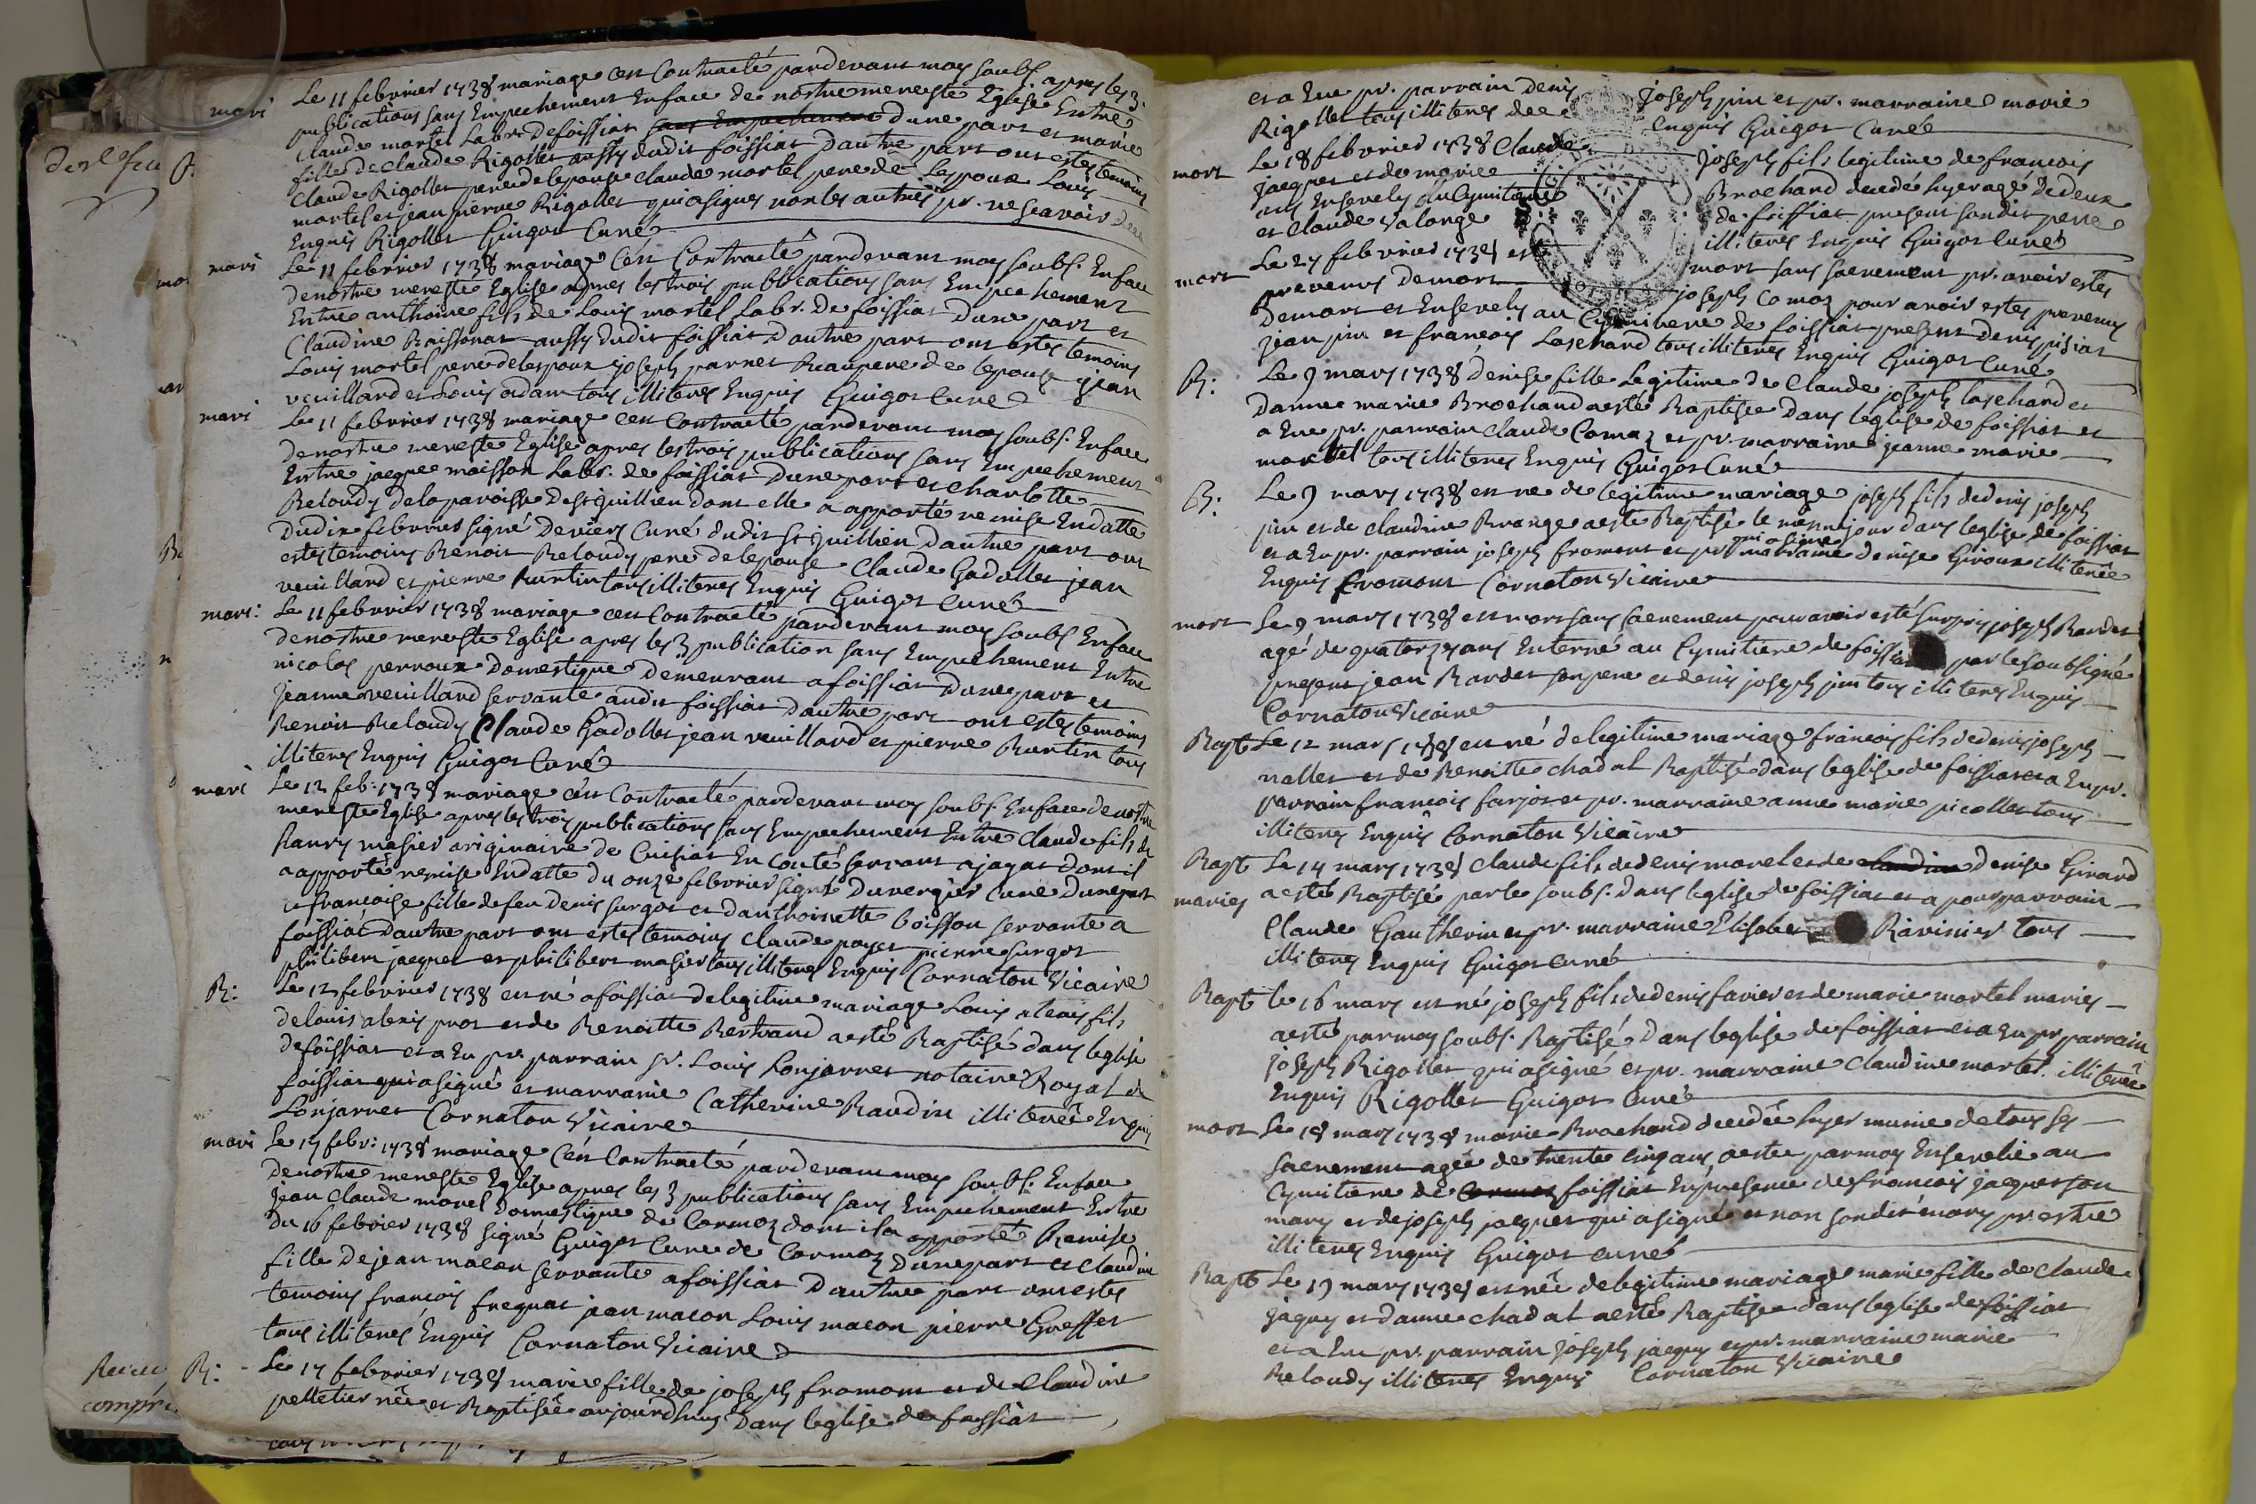 mari Le 11 febvrier 1738 mariage c'est Contracté pardevant moy soubs. apres les 3.
publications sans Empechement En face de nostre mere ste Eglise Entre
Claude mortel Labr. de foissiat sans Empechement d'une part et marie
fille de Claude Rigollet aussy dudit foissiat d'autre part ont estes temoins
Claude Rigollet pere de lepouse Claude mortel pere de Lepoux Louis
mortel et jean pierre Rigollet qui a signes non les autres pr. ne scavoir
Enquis Rigollet Guigot Curé
mari Le 11 febvrier 1738 mariage c'est Contracté pardevant moy soubs. En face
de nostre mere ste Eglise apres les trois publications sans Empechement
Entre anthoine fils de Louis mortel Labr. de foissiat d'une part et
Claudine Raissonat aussy dudit foissiat d'autre part ont estes temoins
Louis mortel pere de lespoux joseph parnet Beaupere de lepouse jean
veuilland et Louis adam tous illiteres Enquis Guigot Curé
mari Le 11 febvrier 1738 mariage c'est Contracté pardevant moy soubs. En face
de nostre mere ste Eglise apres les trois publications sans Empechement
Entre jacque moisson Labr. de foissiat d'une part et Charlotte
Reloudy de la paroisse de st Juillien dont elle a apporté remise En datte
du dix febvrier signé Deviers Curé dudit st Juillien d'autre part ont
estes temoins Benoit Reloudy pere de lepouse Claude Gadollet jean
veuilland et pierre Burtin tous illiteres Enquis Guigot Curé
mari: Le 11 febvrier 1738 mariage c'est Contracté pardevant moy soubs. En face
de nostre mere ste Eglise apres les 3 publication sans Empechement Entre
nicolas perroux Domestique demeurant a foissiat d'une part et
jeanne veuilland servante audit foissiat d'autre part ont estes temoins
Benoit Reloudy Claude Gadollet jean veuilland et pierre Burtin tous
illiteres Enquis Guigot Curé
mari Le 12 feb: 1738 mariage c'est Contracté pardevant moy soubs. En face de nostre
mere ste Eglise apres les trois publications sans Empechement Entre Claude fils de
masier originaire de Cuisiat En Conté servant a jayat dont il
a apporté remise En datte du onze febvrier signé Duvergier Curé d'une part
et françoise fille de feu Denis surgot et d'anthoinette boisson servante a
foissiat d'autre part ont estes temoins Claude poyet pierre surgot
philibert jacquet et philibert masier tous illiteres Enquis Cornaton Vicaire
B: Le 12 febvrier 1738 est né a foissiat de legitime mariage Louis alexis fils
de Louis alexis prost et de Benoitte Bertrand a esté Baptisé dans leglise
de foissiat et a Eu pr. parrain sr. Louis Lonjarret notaire Royal de
foissiat qui a signé et marraine Catherine Baudin illiterée Enquis
Lonjarret Cornaton Vicaire
mari Le 17 febv: 1738 mariage c'est Contracté pardevant moy soubs. En face
de nostre mere ste Eglise apres les 3 publications sans Empechement Entre
jean Claude morel Domestique de Cormoz dont il a apporté Remise
du 16 febvrier 1738 signé Guigot Curé de Cormoz d'une part et Claudine
fille de jean macon servante a foissiat d'autre part ont estes
temoins françois frequat jean macon Louis macon pierre Greffet
tous illiteres Enquis Cornaton Vicaire
B: Le 17 febvrier 1738 marie fille de joseph fromont et de Claudine
pelletier née et Baptisée aujourd'huy dans leglise de foissiat
et a Eue pr. parrain Denis joseph pin et pr. marraine marie
Rigollet tous illiteres Enquis Guigot Curé
mort Le 18 febvrier 1738 Claude joseph fils legitime de francois
jacquet et de marie Brochand decedé hyer agé de deux
ans Ensevely au Cymitiere de foissiat present son dit pere
et Claude Valonge illiteres Enquis Guigot Curé
mort Le 27 febvrier 1738 est mort sans sacrement pr. avoir estes
prevenus de mort joseph Comoz pour avoir estes prevenus
de mort et Ensevely au Cymitiere de foissiat present denis
jean pin et françois Laschard tous illiteres Enquis Guigot Curé
B: Le 9 mars 1738 denise fille Legitime de Claude joseph laschard et
d'anne marie Brochand a esté Baptisée dans leglise de foissiat et
a Eue pr. parrain Claude Comoz et pr. marraine jeanne marie
mortel tous illiteres Enquis Guigot Curé
B: Le 9 mars 1738 est né de legitime mariage joseph fils de denis joseph
pin et de Claudine Brange a esté Baptisé le mesme jour dans leglise de foissiat
et a Eu pr. parrain joseph fromont qui a signé et pr. marraine denise Giroux illiterée
Enquis fromont Cornaton Vicaire
mort Le 9 mars 1738 est mort sans sacrement pour avoir esté surpris joseph Bardet
agé de quatorze ans Enterré au Cymitiere de foissiat par le soubsigné
present jean Bardet son pere et denis joseph pin tous illiteres Enquis
Cornaton Vicaire
Bapt Le 12 mars 1738 est né de legitime mariage francois fils de denis joseph
nallet et de Benoitte chadal Baptisé dans leglise de foissiat et a Eu pr.
parrain francois farjot et pr. marraine anne marie picollet tous
illiteres Enquis Cornaton Vicaire
Bapt Le 14 mars 1738 Claude fils de denis morel et de claudine denise Girard
maries a esté Baptisé par le soubs. dans leglise de foissiat et a pour parrain
Claude Gautherin et pr. marraine Elisabet Ravinier tous
illiteres Enquis Guigot Curé
Bapt le 16 mars est né joseph fils de denis favier et de marie mortel maries
a esté par moy soubs. Baptisé dans leglise de foissiat et a Eu pr. parrain
joseph Rigollet qui a signé et pr. marraine Claudine mortel illiterée
Enquis Rigollet Guigot Curé
mort Le 18 mars 1738 marie Brochand decedée hyer munie de tous ses
sacrement agée de trente cinq ans a estée par moy Ensevelie au
Cymitiere de Cormoz foissiat En presence de francois jacquet son
mary et de joseph jacquet qui a signé et non son dit mary pr. estre
illiteres Enquis Guigot Curé
Bapt Le 19 mars 1738 est née de legitime mariage marie fille de Claude
jaquy et d'anne chadal a esté Baptisée dans leglise de foissiat
et a Eue pr. parrain joseph jaquy et pr. marraine marie
Reloudy illiteres Enquis Cornaton Vicaire